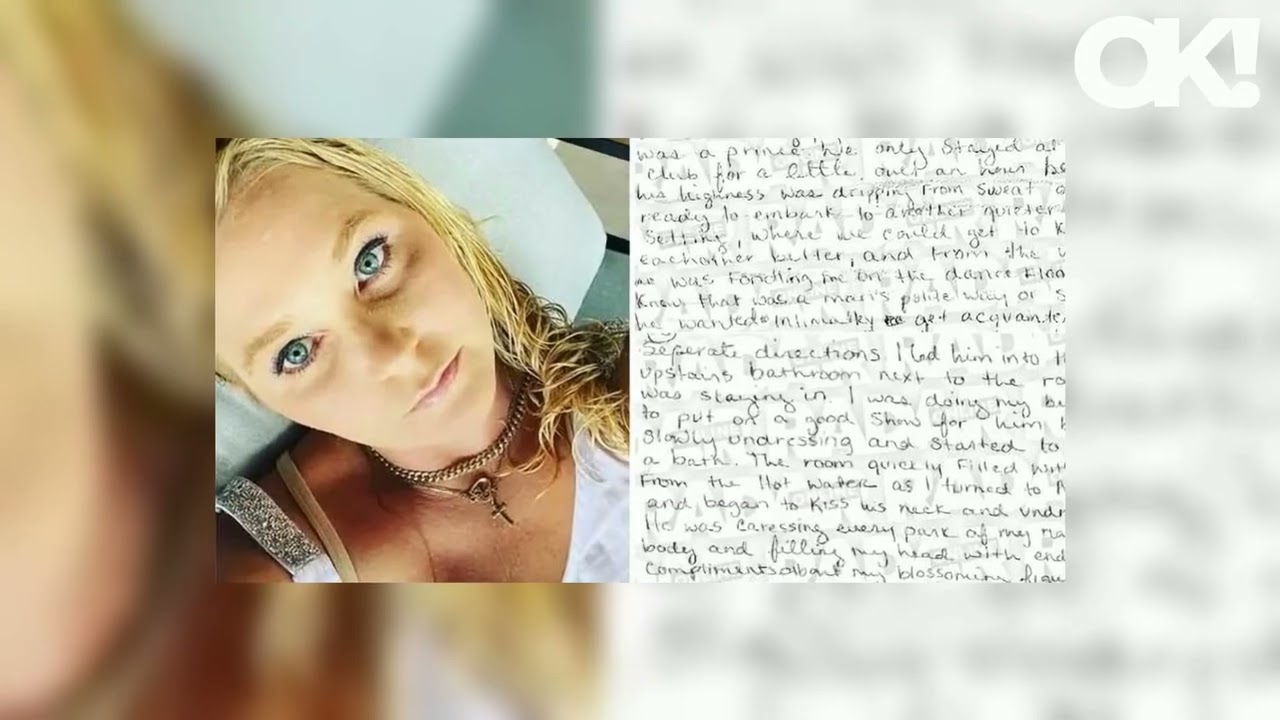 OK!
was a prince. We only stayed at
club for a little over an hour
his highness was dripping from sweat
ready to embark to another quieter
setting, where we could get to
eachother better, and from the
he was fondling me on the dance
knew that was a man's polite way of
he wanted intimalky to get
Seperate directions I led him into
upstairs bathroom next to the
was staying in. I was doing my
to put on a good show for him
slowly undressing and started to
a bath. The room quickly filled
from the Hot water as I turned to
and began to kiss his neck and
He was caressing every park of my
body and filling my head with
compliments about my blossoming